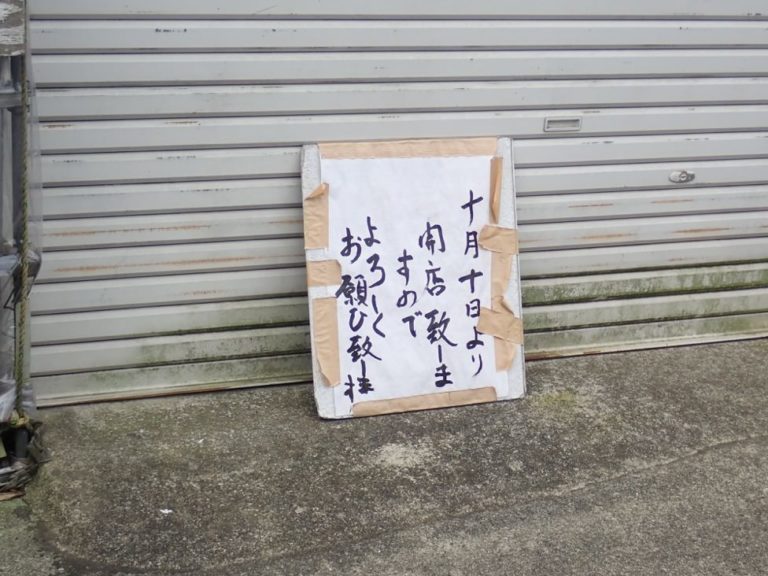 十月十日より
開店致しま
すので
よろしく
お願ひ致し枡